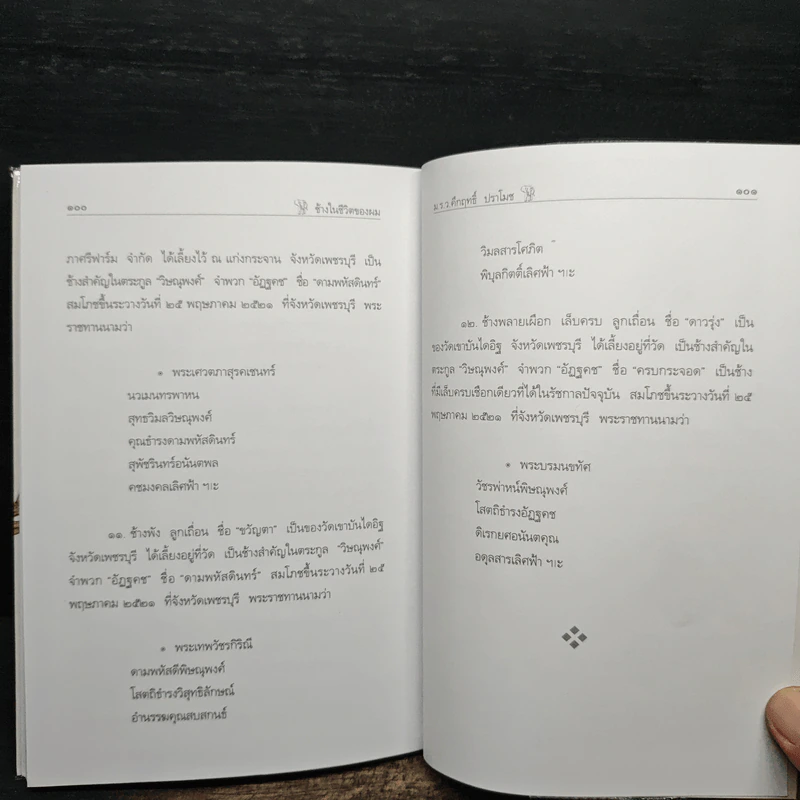 ๑๐๐ ช้างในชีวิตของผม
ภาศรีฟาร์ม จำกัด ได้เลี้ยงไว้ ณ แก่งกระจาน จังหวัดเพชรบุรี เป็น
ช้างสำคัญในตระกูล “วิษณุพงศ์” จำพวก “อัฏฐคช” ชื่อ “ดามพหัสดินทร์”
สมโภชขึ้นระวางวันที่ ๒๕ พฤษภาคม ๒๕๒๑ ที่จังหวัดเพชรบุรี พระ
ราชทานนามว่า
* พระเศวตภาสุรคเชนทร์
นวเมนทรพาหน
สุทธวิมลวิษณุพงศ์
คุณธำรงดามพหัสดินทร์
สุพัชรินทร์อนันตพล
คชมงคลเลิศฟ้า ฯะ
๑๑. ช้างพัง ลูกเถื่อน ชื่อ “ขวัญตา” เป็นของวัดเขาบันไดอิฐ
จังหวัดเพชรบุรี ได้เลี้ยงอยู่ที่วัด เป็นช้างสำคัญในตระกูล “วิษณุพงศ์”
จำพวก “อัฏฐคช” ชื่อ “ดามพหัสดินทร์” สมโภชขึ้นระวางวันที่ ๒๕
พฤษภาคม ๒๕๒๑ ที่จังหวัดเพชรบุรี พระราชทานนามว่า
* พระเทพวัชรกิริณี
ดามพหัสดีพิษณุพงศ์
โสตถิธำรงวิสุทธิลักษณ์
อำนรรฆคุณสบสกนธ์
ม.ร.ว.คึกฤทธิ์ ปราโมช ๑๐๑
วิมลสารโศภิต
พิบุลกิตติ์เลิศฟ้า ฯะ
๑๒. ช้างพลายเผือก เล็บครบ ลูกเถื่อน ชื่อ “ดาวรุ่ง” เป็น
ของวัดเขาบันไดอิฐ จังหวัดเพชรบุรี ได้เลี้ยงอยู่ที่วัด เป็นช้างสำคัญใน
ตระกูล “วิษณุพงศ์” จำพวก “อัฏฐคช” ชื่อ “ครบกระจอก” เป็นช้าง
ที่มีเล็บครบเชือกเดียวที่ได้ในรัชกาลปัจจุบัน สมโภชขึ้นระวางวันที่ ๒๕
พฤษภาคม ๒๕๒๑ ที่จังหวัดเพชรบุรี พระราชทานนามว่า
* พระบรมนขทัศ
วัชรพ่าหน์พิษณุพงศ์
โสตถิธำรงอัฏฐคช
ดิเรกยศอนันตคุณ
อดุลสารเลิศฟ้า ฯะ